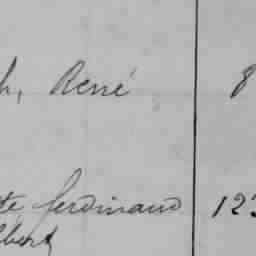 h, René 8
te ferdinand 123
lbert